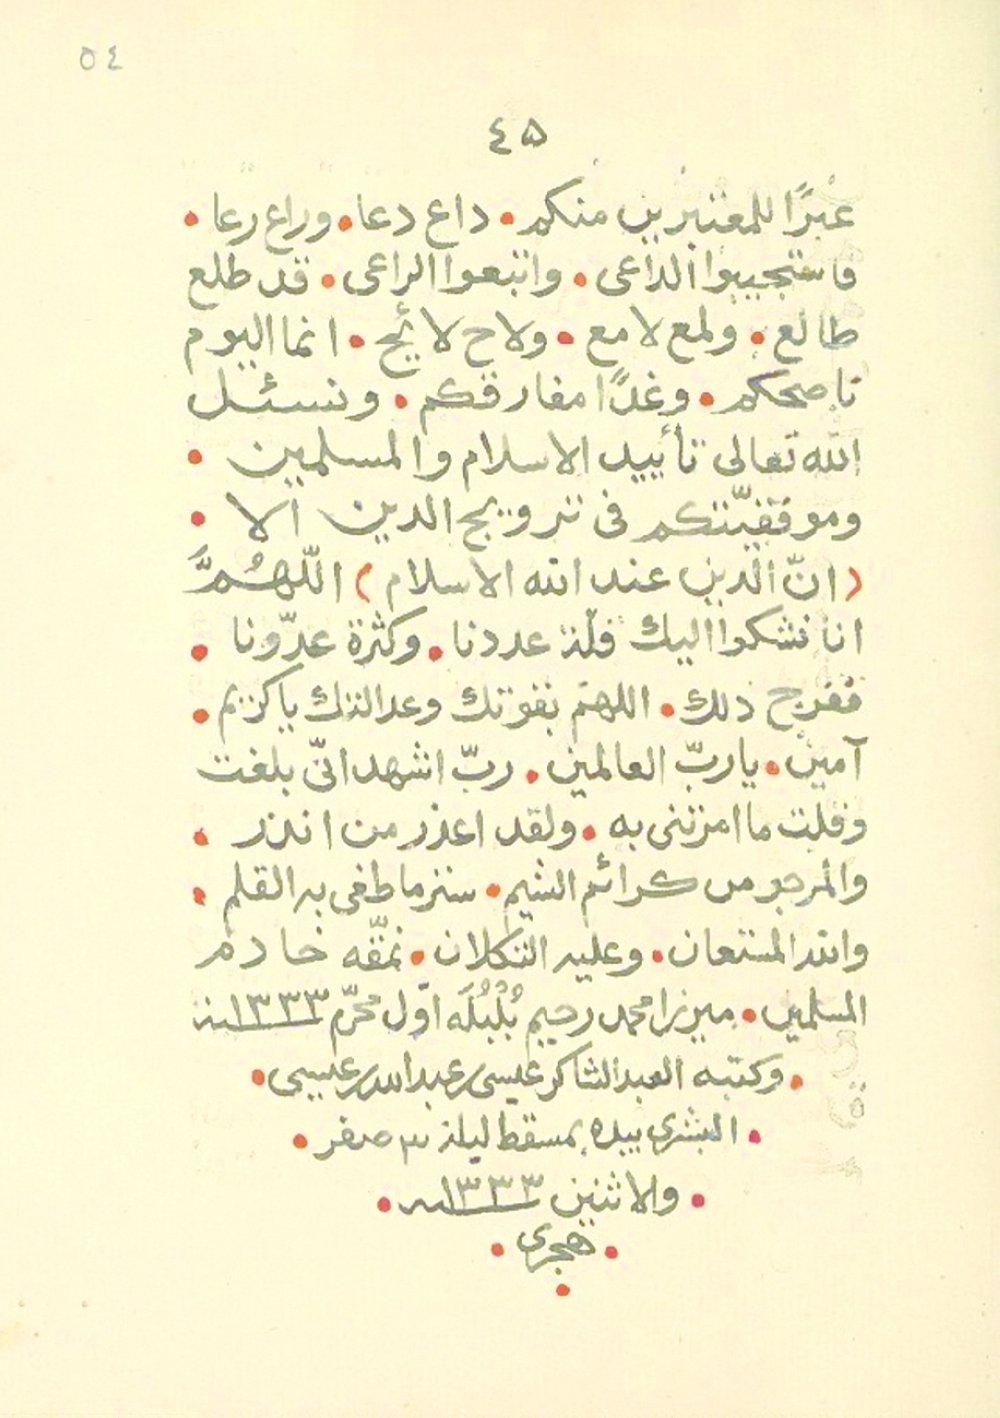 ٥٤
٤٥
عبرًا للمعتبرين منكم • داع دعا • وراع رعا •
فاستجيبوا الداعى • واتبعوا الراعى • قد طلع
طالع • ولمع لامع • ولاح لائح • انما اليوم
ناصحكم • وغدًا مفارقكم • ونسئل
الله تعالى تأييد الاسلام والمسلمين •
وموفقيّتكم فى ترويج الدين الا •
(انّ الدين عند الله الاسلام) اللّهُمَّ
انا نشكوا اليك قلّة عددنا • وكثرة عدوّنا •
ففرج ذلك • اللهم بقوتك وعدالتك ياكريم •
آمين • يا ربّ العالمين • ربّ اشهد انّى بلغت
وقلت ما امرتنى به • ولقد اعذر من انذر •
والمرجو من كرائم الشيم • ستر ما طغى به القلم •
والله المستعان • وعليه التكلان • نمّقه خادم
المسلمين • ميرزا محمد رحيم بُلْبُلَه اوّل محرّم ١٣٣٣سنة
• وكتبه العبد الشاكر عيسى عبدالله عيسى •
• البشرى بيده بمسقط ليلة ٣ صفر •
• والاثنين ١٣٣٣سنه •
• هجرى •
•